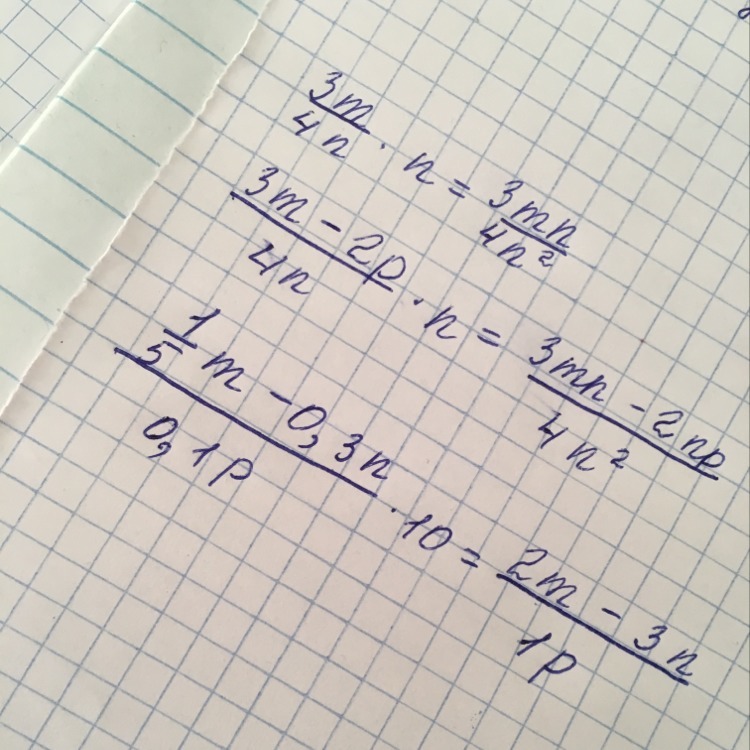 3m/4n · n = 3mn/4n²
(3m - 2p)/4n · n = (3mn - 2np)/4n²
(1/5 m - 0,3n)/0,1p · 10 = (2m - 3n)/1p